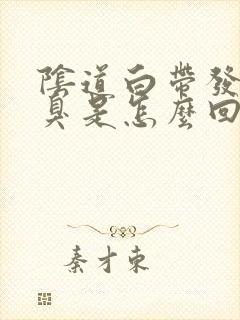 陰道白帶發
臭是怎麼回
秦才東